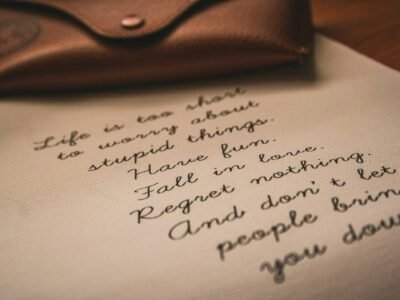 Life is too short
to worry about
stupid things.
Have fun.
Fall in love.
Regret nothing.
And don't let
people brin
you dow